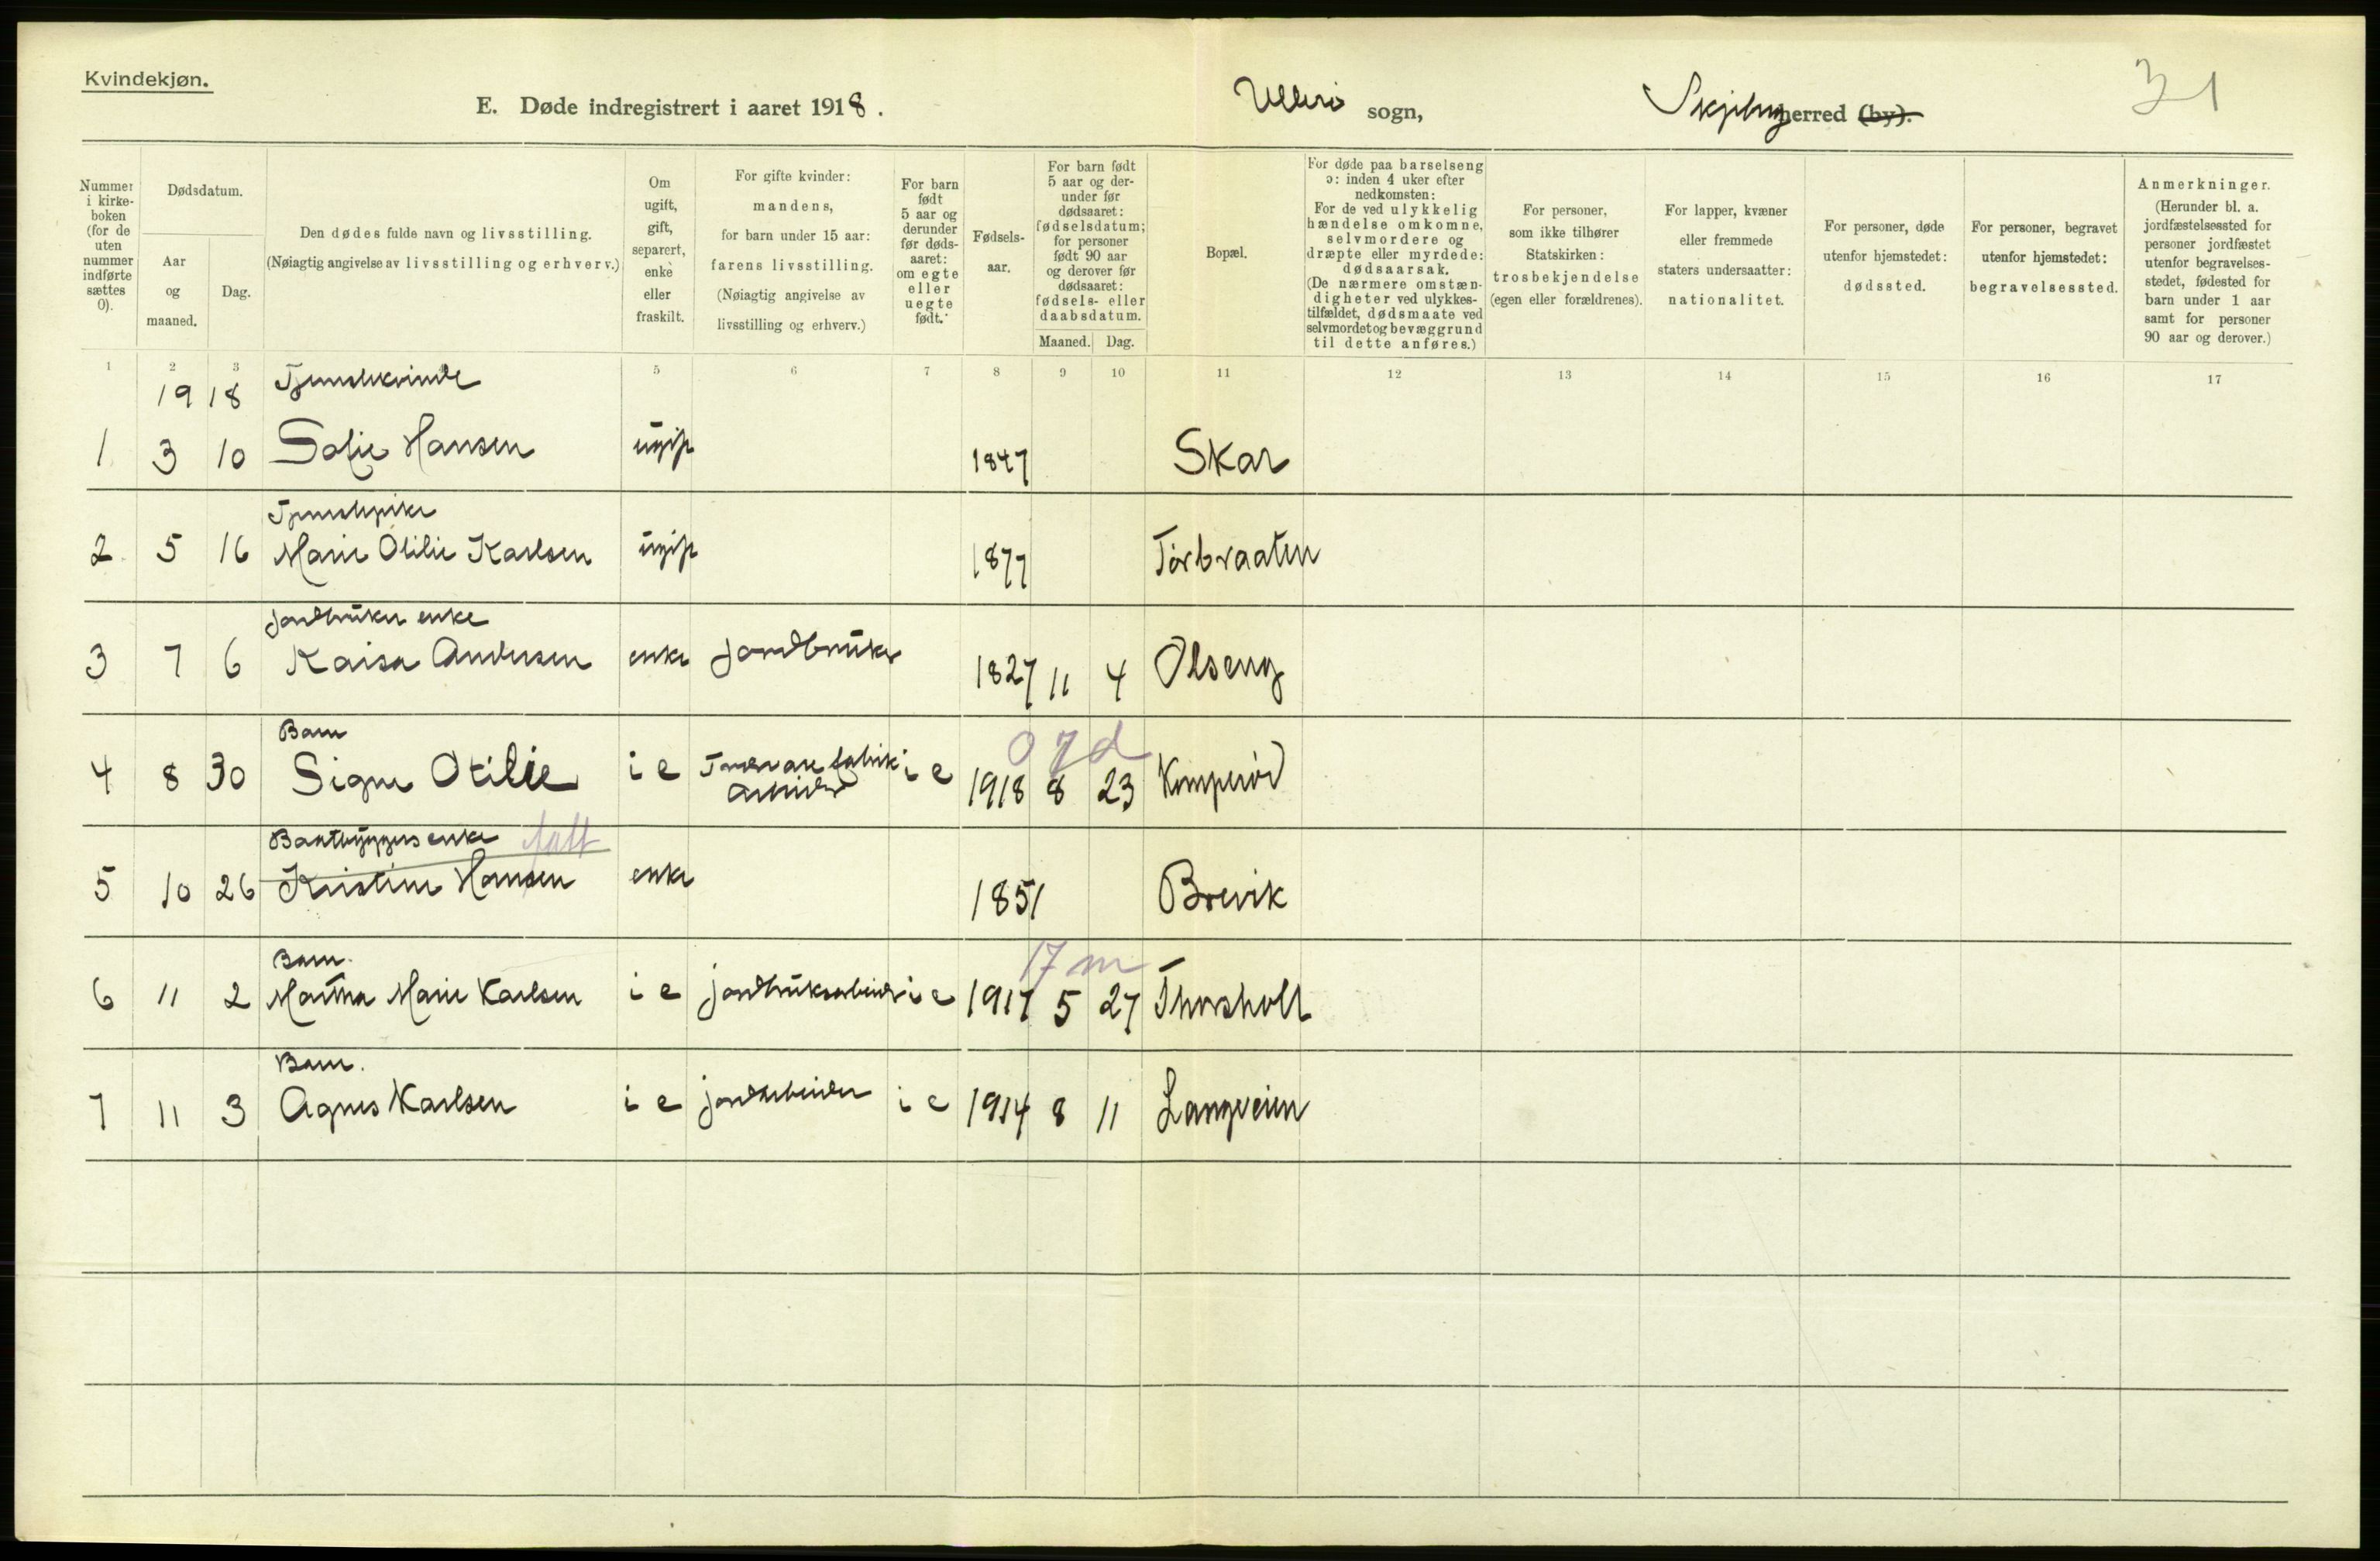 Kvindekjøn.
E. Døde indregistrert i aaret 1918.
Ullerø sogn,
Skjeberg herred (by).
31
Nummer i kirke-boken (for de uten nummer indførte sættes 0).
Dødsdatum.
Aar og maaned.
Dag.
Den dødes fulde navn og livsstilling.
(Nøiagtig angivelse av livsstilling og erhverv.)
Om ugift, gift, separert, enke eller fraskilt.
For gifte kvinder: mandens, for barn under 15 aar: farens livsstilling. (Nøiagtig angivelse av livsstilling og erhverv.)
For barn født 5 aar og derunder før døds-aaret: om egte eller uegte født.
Fødsels-aar.
For barn født 5 aar og der-under før dødsaaret: fødselsdatum; for personer født 90 aar og derover før dødsaaret: fødsels- eller daabsdatum.
Maaned. Dag.
Bopæl.
For døde paa barselseng ɔ: inden 4 uker efter nedkomsten: For de ved ulykkelig hændelse omkomne, selvmordere og dræpte eller myrdede: dødsaarsak. (De nærmere omstæn-digheter ved ulykkes-tilfældet, dødsmaate ved selvmordet og bevæggrund til dette anføres.)
For personer, som ikke tilhører Statskirken: trosbekjendelse (egen eller forældrenes).
For lapper, kvæner eller fremmede staters undersaatter: nationalitet.
For personer, døde utenfor hjemstedet: dødssted.
For personer, begravet utenfor hjemstedet: begravelsessted.
Anmerkninger. (Herunder bl. a. jordfæstelsessted for personer jordfæstet utenfor begravelses-stedet, fødested for barn under 1 aar samt for personer 90 aar og derover.)
1 2 3 5 6 7 8 9 10 11 12 13 14 15 16 17
1918 Tjenestekvinde
1 3 10 Sofie Hansen ugift 1847 Skar
Tjenestepike
2 5 16 Marie Otilie Karlsen ugift 1877 Torbraaten
Jordbruker enke
3 7 6 Kaisa Andersen enke jordbruker 1827 11 4 Olseng
Barn 0 7 d
4 8 30 Signe Otilie i e Trævarefabrik arbeider i e 1918 8 23 Komperød
Baatbyggers enke falt
5 10 26 Kristine Hansen enke 1851 Brevik
Barn. 17 m
6 11 2 Martha Marie Karlsen i e jordbruksarbeider i e 1917 5 27 Thorsholt
Barn.
7 11 3 Agnes Karlsen i e jordarbeider i e 1914 8 11 Langveien